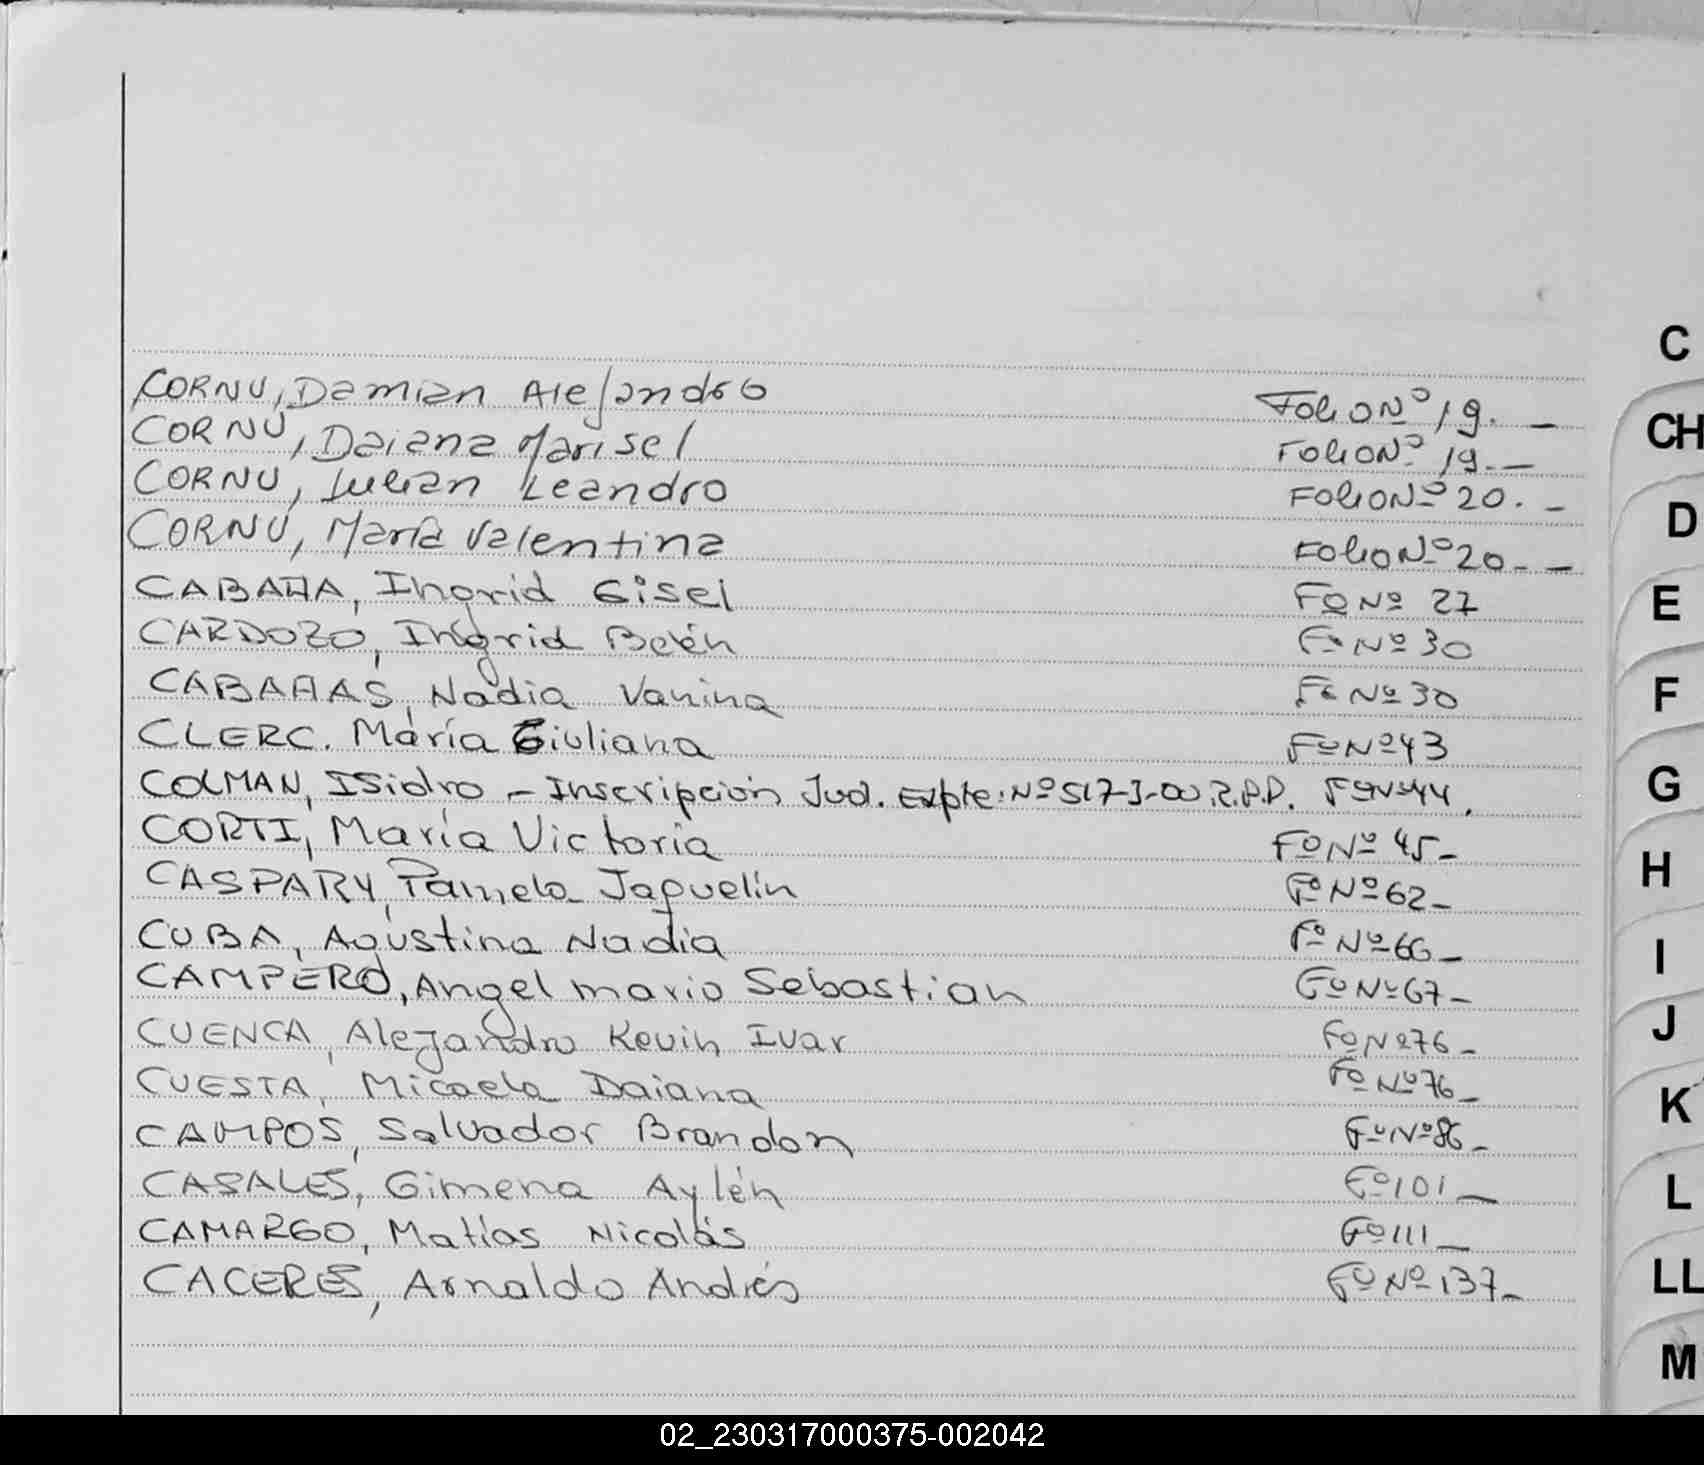 CORNU, Damian Alejandro Folio Nº 19. -
CORNU, Daiana Marisel Folio Nº 19. -
CORNU, Julian Leandro Folio Nº 20. -
CORNU, María Valentina Folio Nº 20 - -
CABAÑA, Ingrid Gisel Fº Nº 27
CARDOZO, Ingrid Belén Fº Nº 30
CABAÑAS, Nadia Vanina Fº Nº 30
CLERC. María Giuliana Fº Nº 43
COLMAN, Isidro - Inscripción Jud. Expte: Nº 517-J-00 R.P.P. Fº Nº 44.
CORTI, María Victoria Fº Nº 45 -
CASPARY, Pamela Jaquelín Fº Nº 62 -
CUBA, Agustina Nadia Fº Nº 66 -
CAMPERO, Angel mario Sebastian Fº Nº 67 -
CUENCA, Alejandro Kevin Ivar Fº Nº 76 -
CUESTA, Micaela Daiana Fº Nº 76 -
CAMPOS, Salvador Brandon Fº Nº 86 -
CASALES, Gimena Aylén Fº 101 -
CAMARGO, Matías Nicolás Fº 111 -
CACERES, Arnaldo Andrés Fº Nº 137 -
C
CH
D
E
F
G
H
I
J
K
L
LL
M
02_230317000375-002042